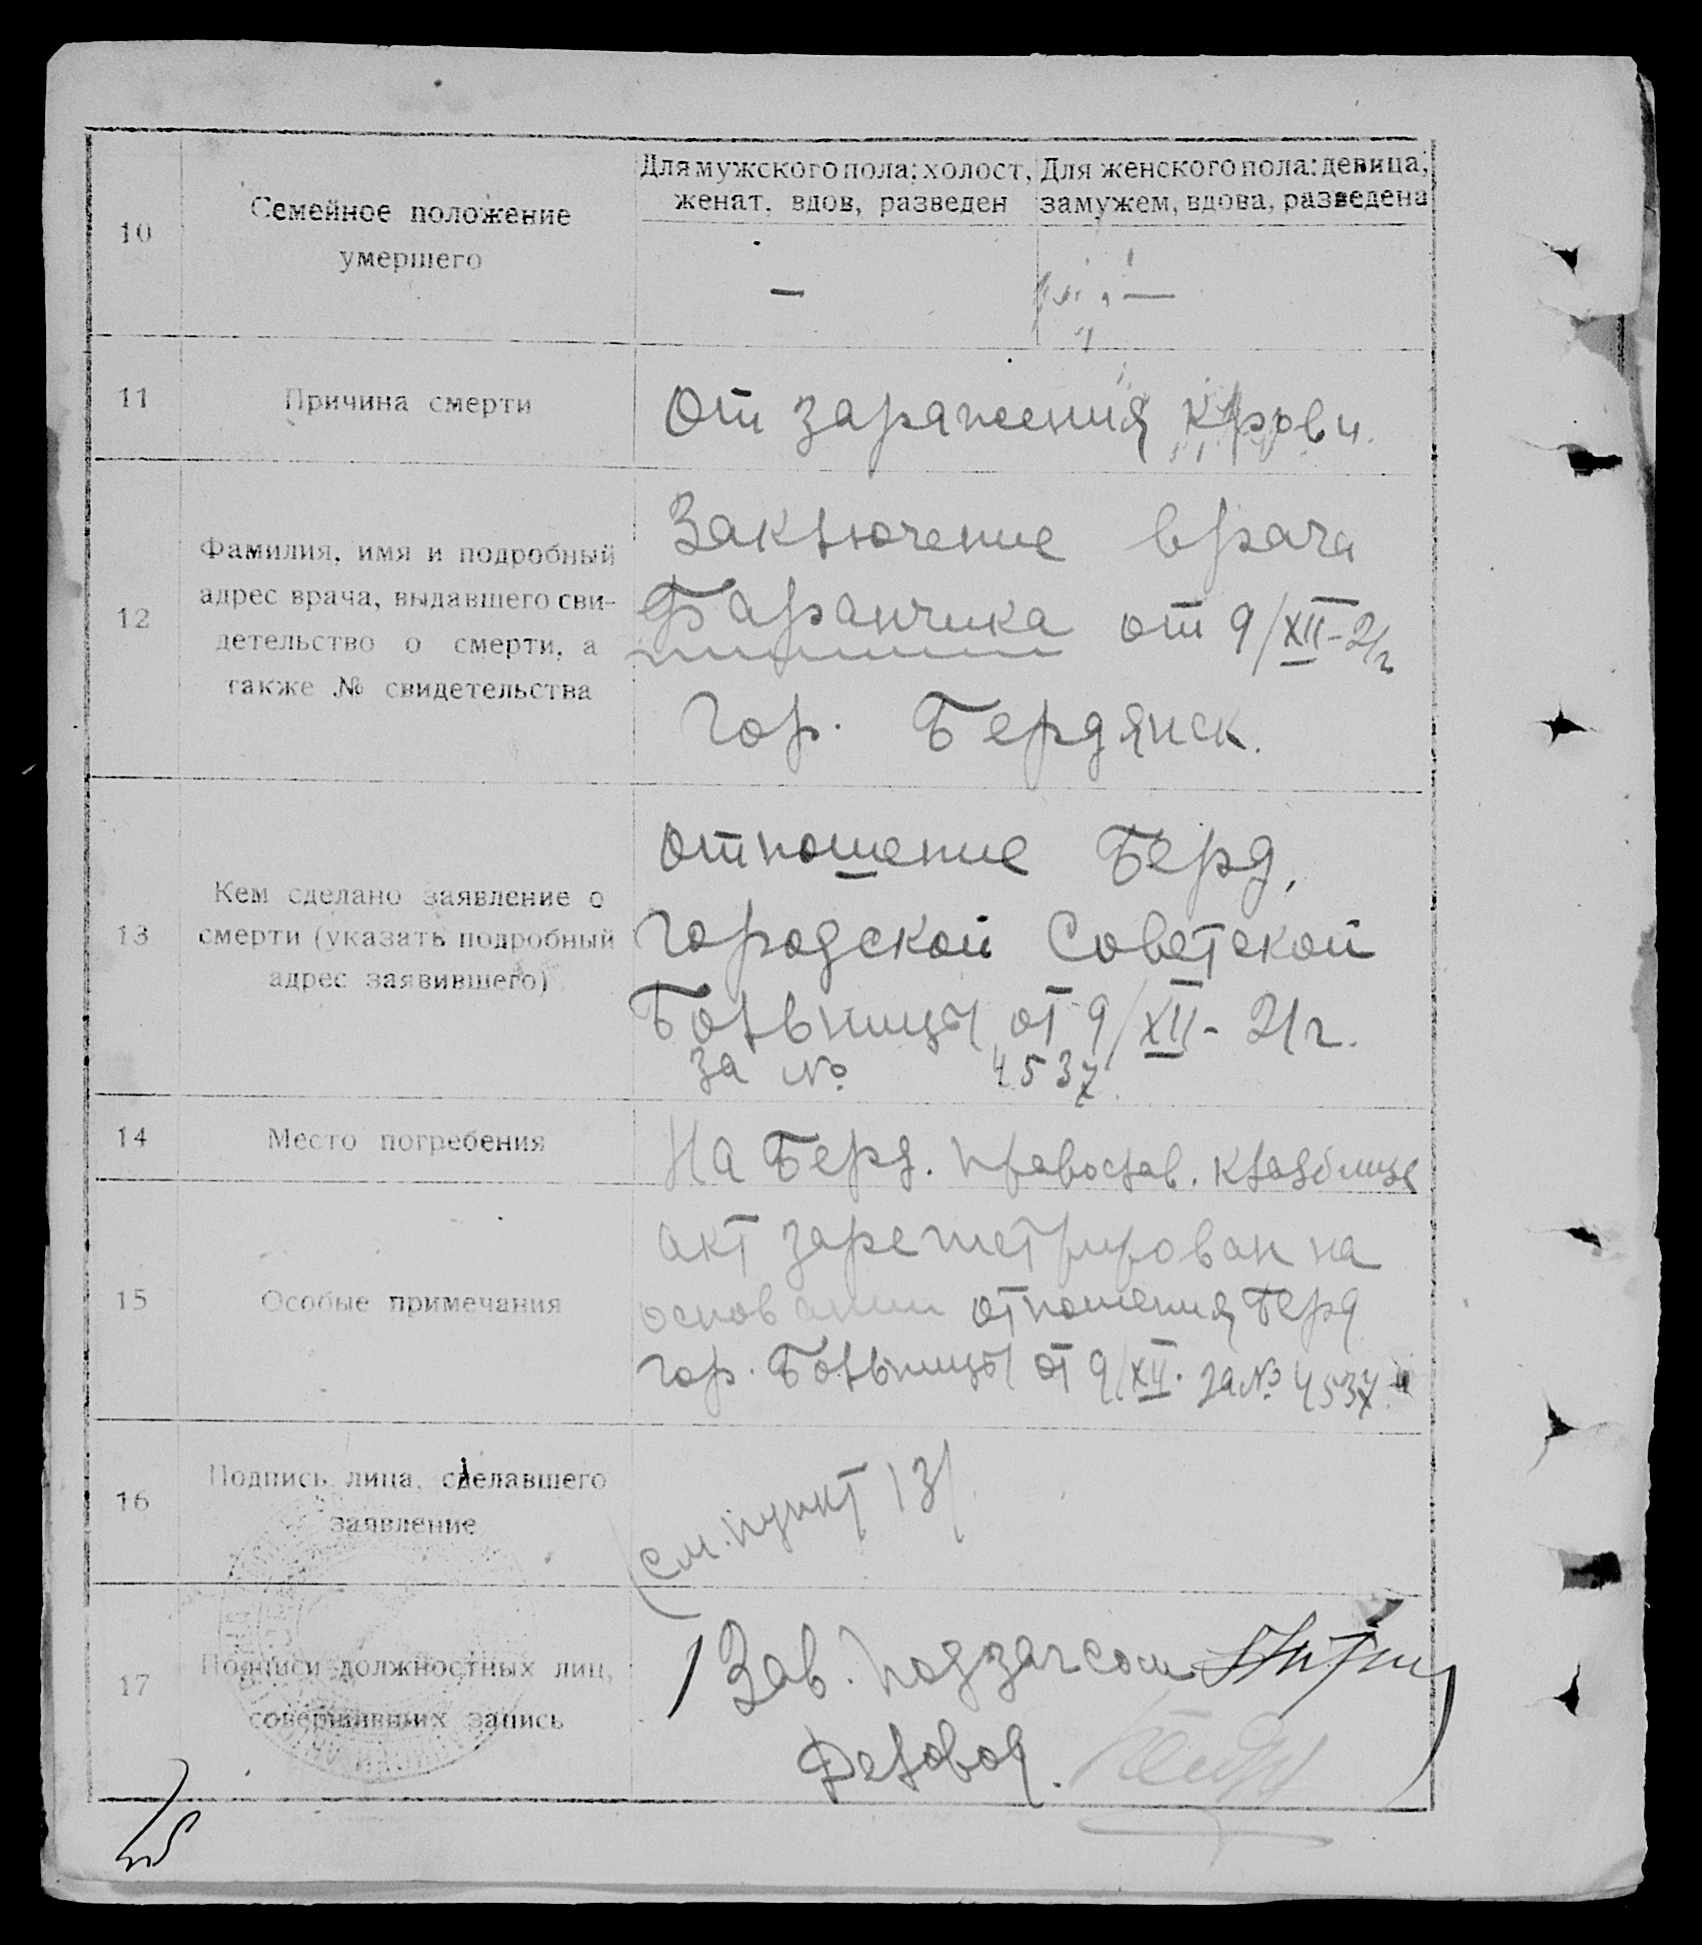 Для мужского пола: холост, женат, вдов, разведен
Для женского пола: девица, замужем, вдова, разведена
10 Семейное положение
умершего
— —
11 Причина смерти
От заражения крови.
12 Фамилия, имя и подробный
адрес врача, выдавшего сви-
детельство о смерти, а
также № свидетельства
Заключение врача
Фаранчика от 9/XII-21г
Гор. Бердянск.
13 Кем сделано заявление о
смерти (указать подробный
адрес заявившего)
Отношение Берд.
Городской Советской
Больницы от 9/XII-21г.
за № 4537
14 Место погребения
На Берд. Православ. кладбище
15 Особые примечания
Акт зарегистрирован на
основании отношения Берд
Гор. Больницы от 9/XII. за № 4537
16 Подпись лица, сделавшего
заявление
См. пункт 13/
17 Подписи должностных лиц,
совершивших запись
Зав. подзагсом
Деловод.